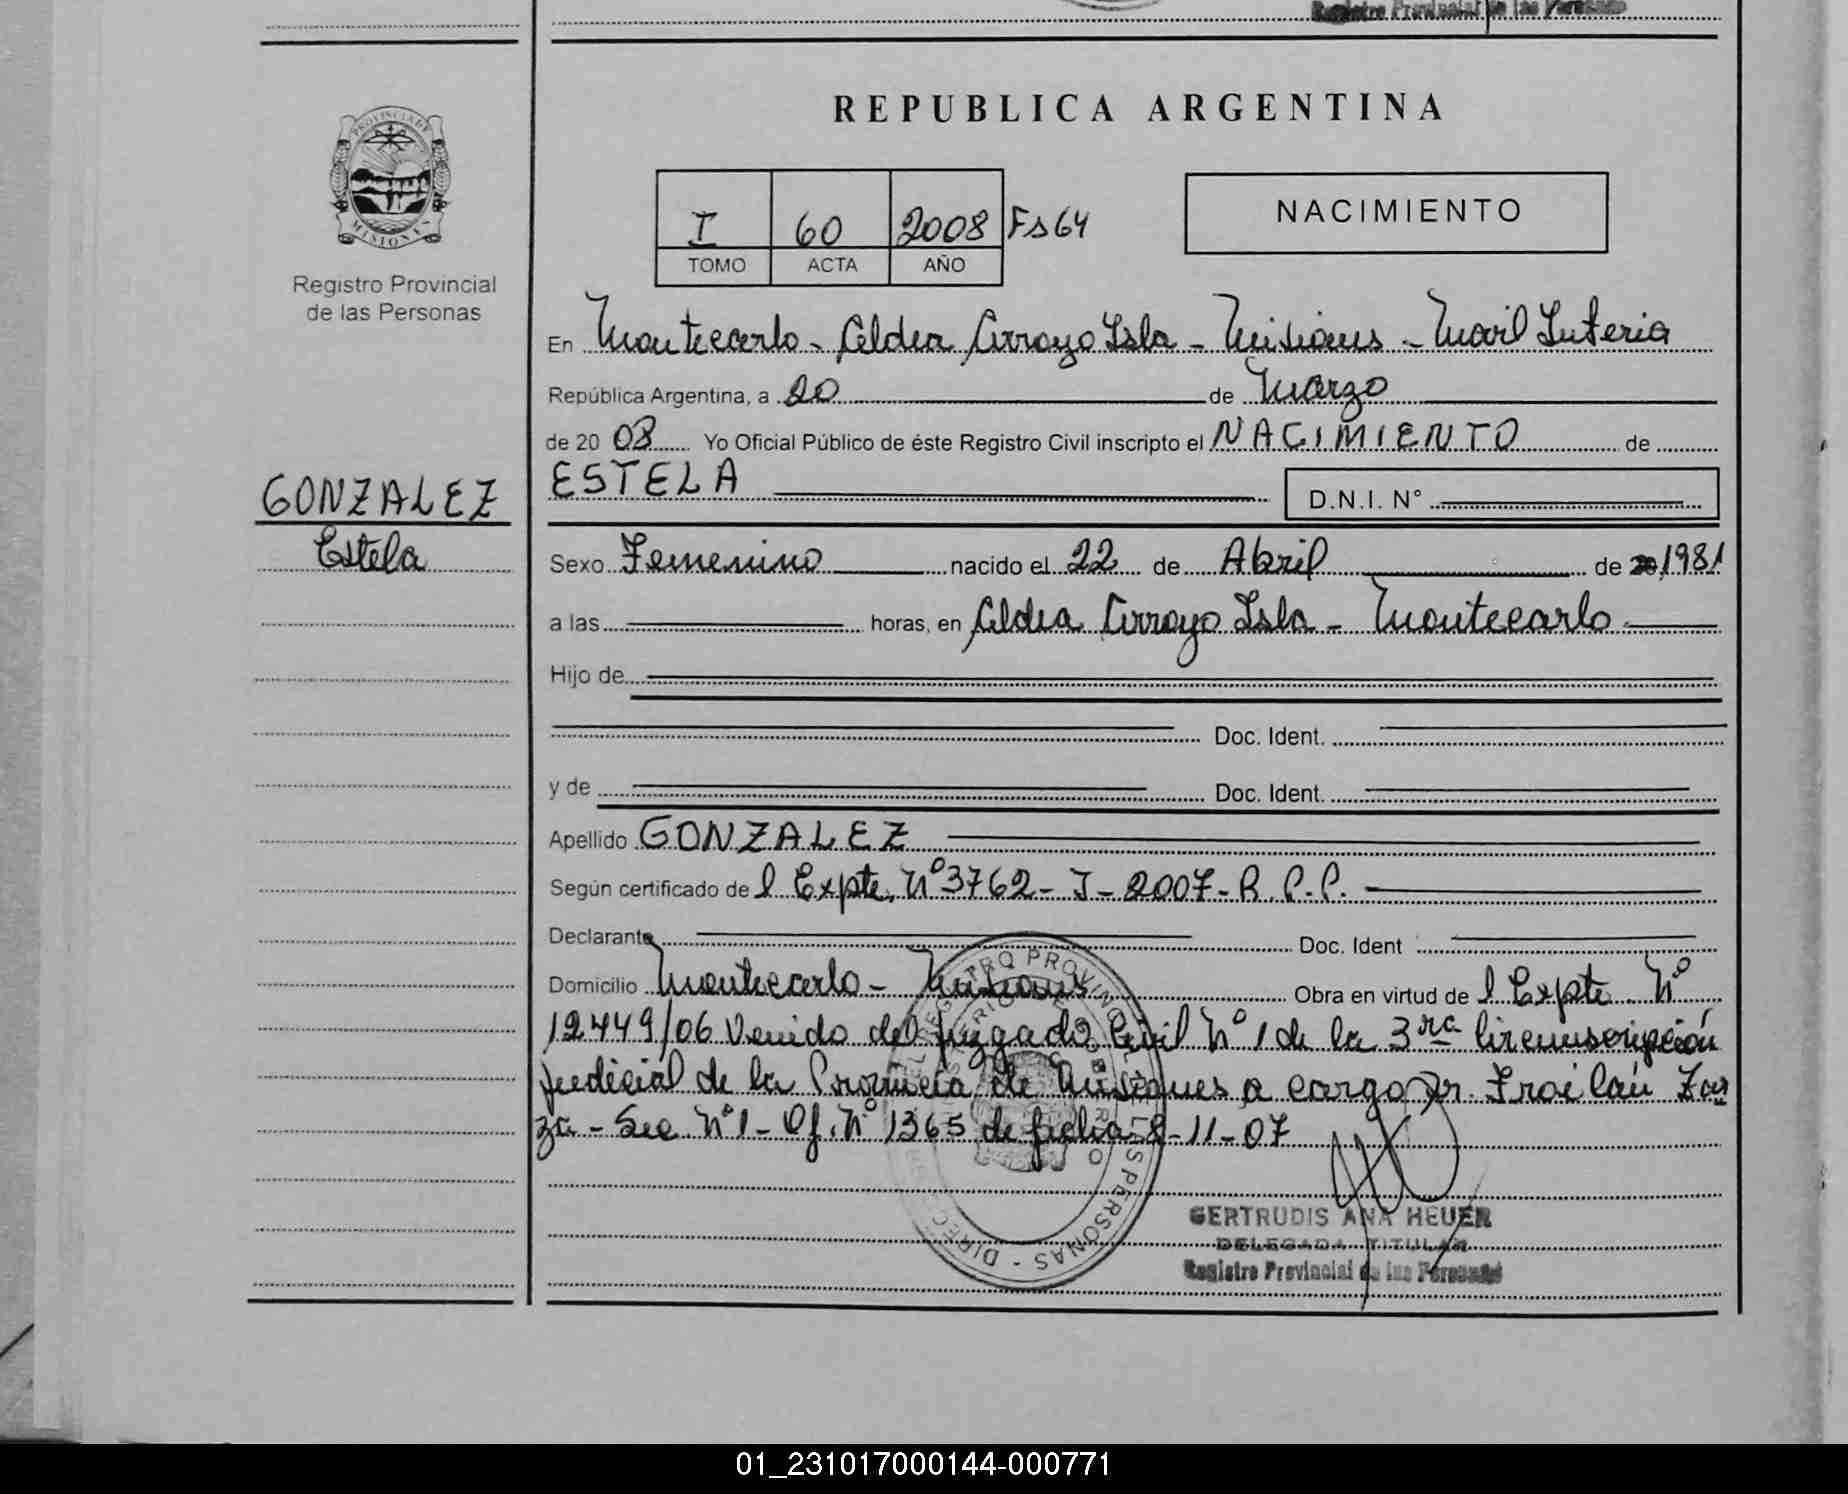 Registro Provincial de las Personas
REPUBLICA ARGENTINA
PROVINCIA DE
MISIONES
Registro Provincial
de las Personas
I 60 2008 Fs 64
TOMO ACTA AÑO
NACIMIENTO
En Montecarlo - Aldea Arroyo Isla - Misiones - Movil Interia
República Argentina, a 20 de Marzo
de 20 08 Yo Oficial Público de éste Registro Civil inscripto el NACIMIENTO de
GONZALEZ
Estela
ESTELA D.N.I. N°
Sexo Femenino nacido el 22 de Abril de 1981
a las horas, en Aldea Arroyo Isla - Montecarlo
Hijo de
Doc. Ident.
y de Doc. Ident.
Apellido GONZALEZ
Según certificado de l Expte. N° 3762 - J - 2007 - R. P. P.
Declarante Doc. Ident
Domicilio Montecarlo - Misiones Obra en virtud de l Expte N°
12449/06 Venido del Juzgado Civil N° 1 de la 3ra Circunscripción
Judicial de la Provincia de Misiones a cargo Dr. Froilán Zar
za - Sec N° 1 - Of. N° 1365 de fecha 8-11-07
GERTRUDIS ANA HEUER
DELEGADA TITULAR
Registro Provincial de las Personas
01_231017000144-000771